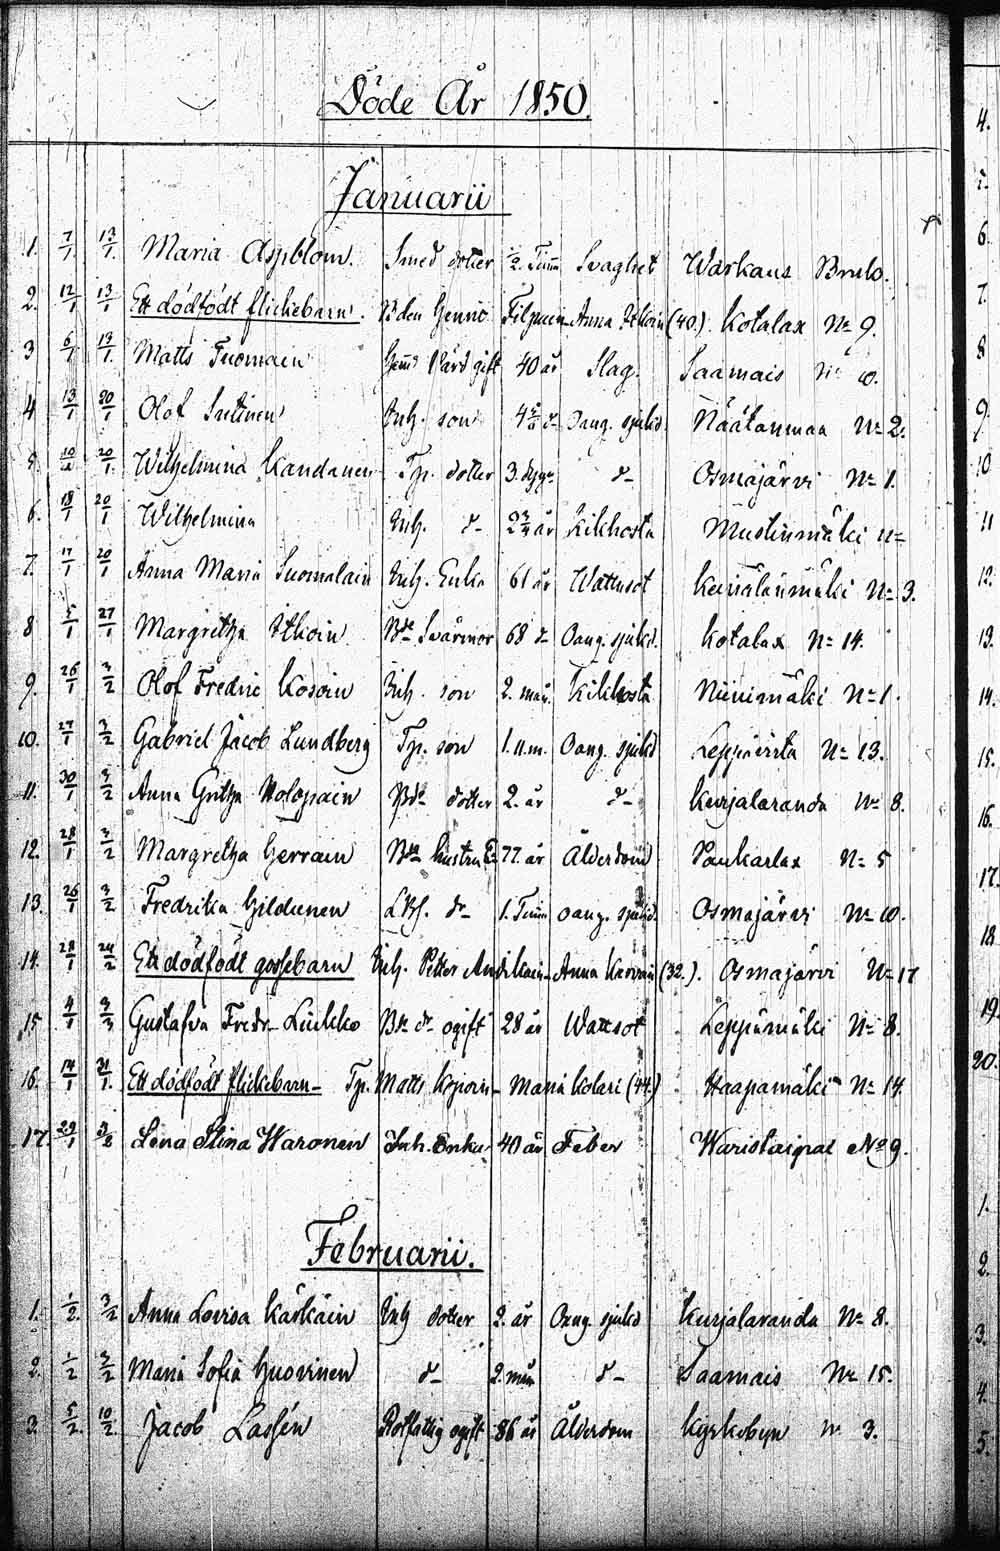 Döde År 1850.
Januarii
1. 7/1. 13/1. Maria Asplblom. Smed dotter 1/2. Timm Svaghet Warkaus Bruk.
2. 12/1 13/1 Ett dödfödt flickebarn. Bden Henric Filpuin Anna Itkoin (40.) Kotalax No 9.
3 6/1 13/1. Matts Tuomain Hem. Värd gift 40 år Slag. Saamais No 10.
4 13/1 20/1 Olof Sutinen Inh. son 4 d- Oang. sjukd Näätänmaa No 2.
5. 10/1 20/1. Wilhelmina Kandanen Tp. dotter 3. dygn d- Osmajärvi No 1.
6. 18/1 20/1 Wilhelmina Inh. d- 2 3/4 år Kikhosta Mustinmäki No
7. 17/1 20/1 Anna Maria Suomalain Inh. Enka 61 år Wattusot No 3.
8 5/1 27/1 Margretha Itkoin Bde Svärmor 68 d- Oang. sjukd. Kotalax No 14.
9. 26/1 3/2 Olof Fredric Kosoin Inh. son 2. mån. Kikhosta Niinimäki No 1.
10. 27/1 3/2 Gabriel Jacob Lundberg Tp. son 1. u. m. Oang. sjukd Leppävirta No 13.
11. 30/1 3/2 Anna Gretha Holopain Bde dotter 2. år d- Kurjalaranda No 8.
12. 28/1 3/2 Margretha Herrain Bde hustru E- 77. år Ålderdom Paukarlax No 5
13. 26/1 3/2 Fredrika Hildunen LKf. dr 1. Timm oang. sjukd. Osmajärvi No 10.
14. 28/1 24/2 Ett dödfödt gossebarn Inh. Petter Andikain- Anna Karvain (32.). Osmajärvi No 17
15 4/1 3/3 Gustafva Fredr- Liukko Bde dr ogift 28 år Wattsot Leppämäki No 8.
16. 14/1 21/1. Ett dödfödt flickebarn- Tp. Matts Kojoin- Maria Kolari (44.) Haapamäki No 14.
17. 29/1 3/8 Lena Stina Waronen Inh. Enka 40 år Feber Waristaipal No 9.
Februarii.
1. 1/2. 3/2 Anna Lovisa Kärkäin Inh dotter 2. år Oang. sjukd Kurjalaranda No 8.
2. 1/2 3/2 Maria Sofia Huovinen d- 2. mån d- Saamais No 15.
3. 5/2. 10/2. Jacob Lassén Rotfattig ogift 86 år Ålderdom Kyrkobyn No 3.